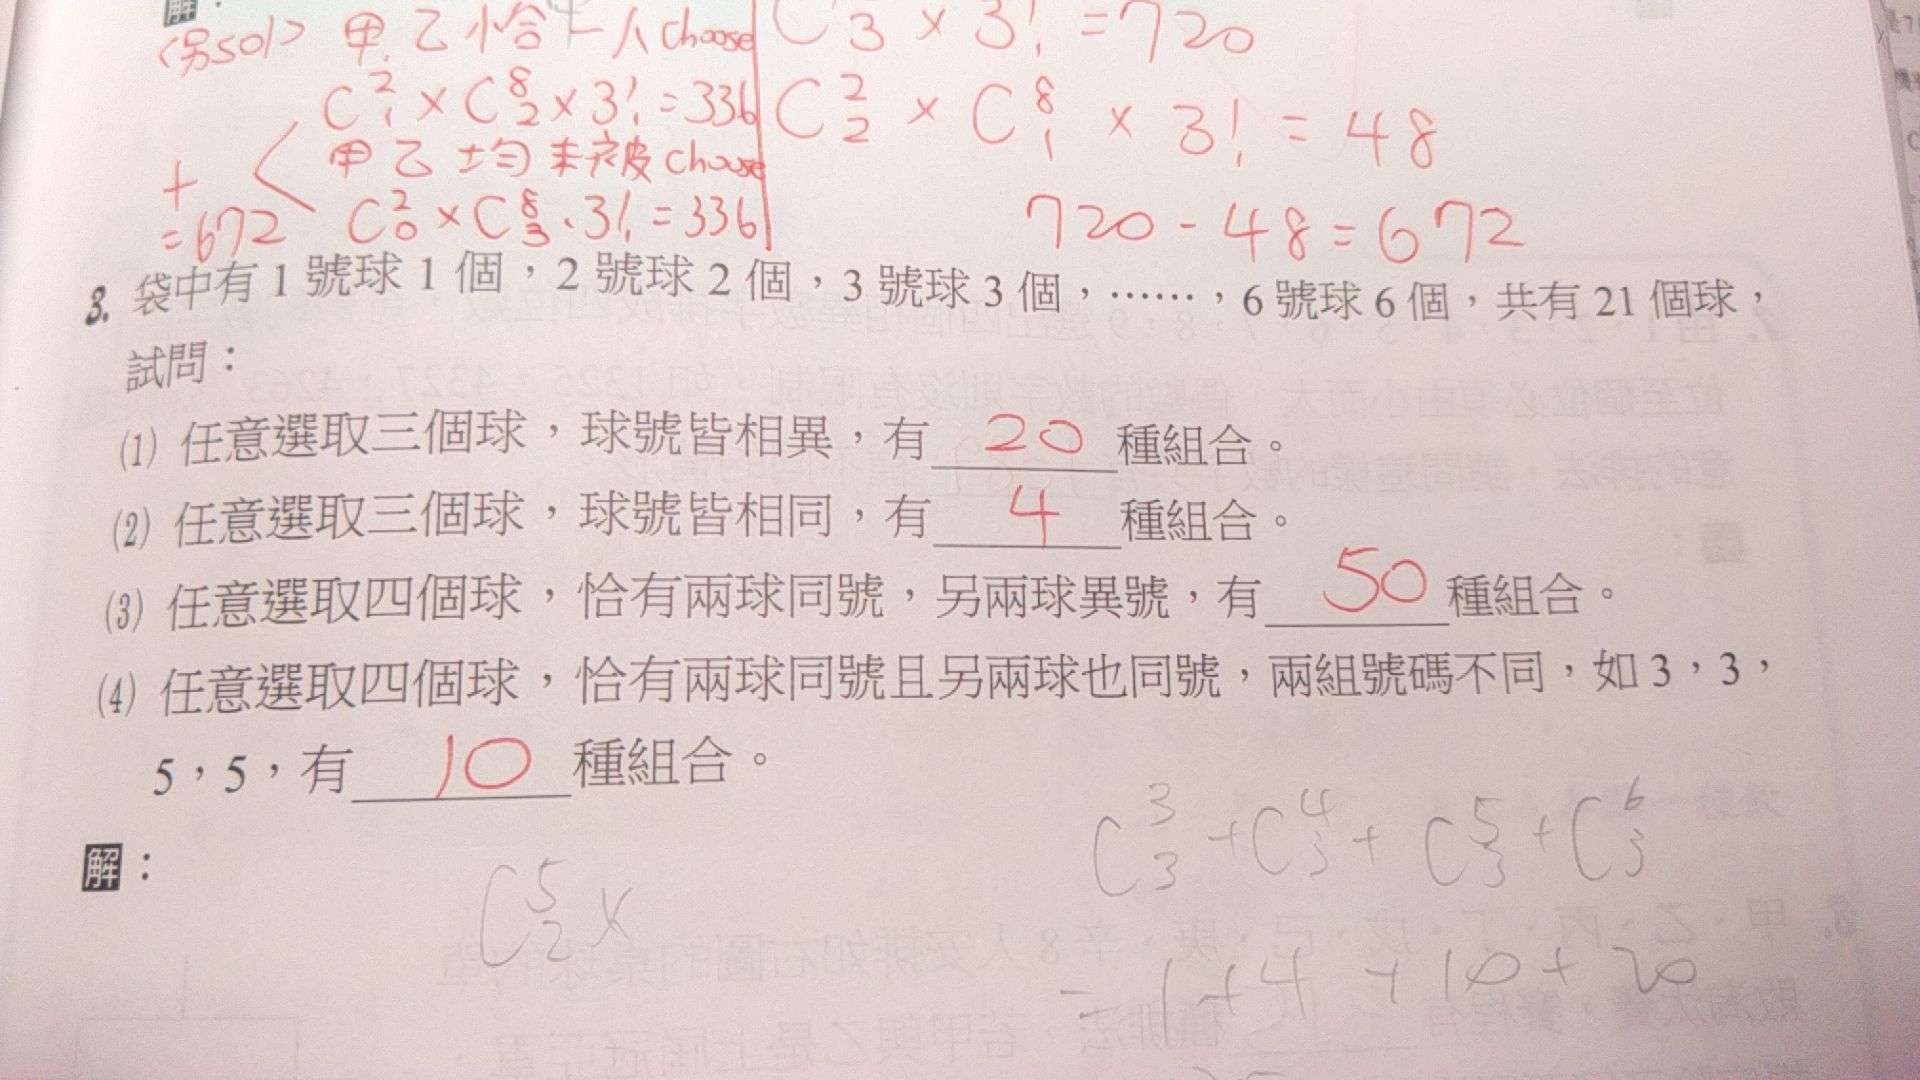 解：
<另sol> 甲.乙恰一人choose
C 3 × 3! = 720
C²₁ × C⁸₂ × 3! = 336
甲乙均未被choose
+
= 672
C²₀ × C⁸₃ · 3! = 336
C²₂ × C⁸₁ × 3! = 48
720 - 48 = 672
3. 袋中有 1 號球 1 個，2 號球 2 個，3 號球 3 個，……，6 號球 6 個，共有 21 個球，
試問：
(1) 任意選取三個球，球號皆相異，有 20 種組合。
(2) 任意選取三個球，球號皆相同，有 4 種組合。
(3) 任意選取四個球，恰有兩球同號，另兩球異號，有 50 種組合。
(4) 任意選取四個球，恰有兩球同號且另兩球也同號，兩組號碼不同，如 3，3，
5，5，有 10 種組合。
解：
C⁵₂ ×
C³₃ + C⁴₃ + C⁵₃ + C⁶₃
= 1 + 4 + 10 + 20